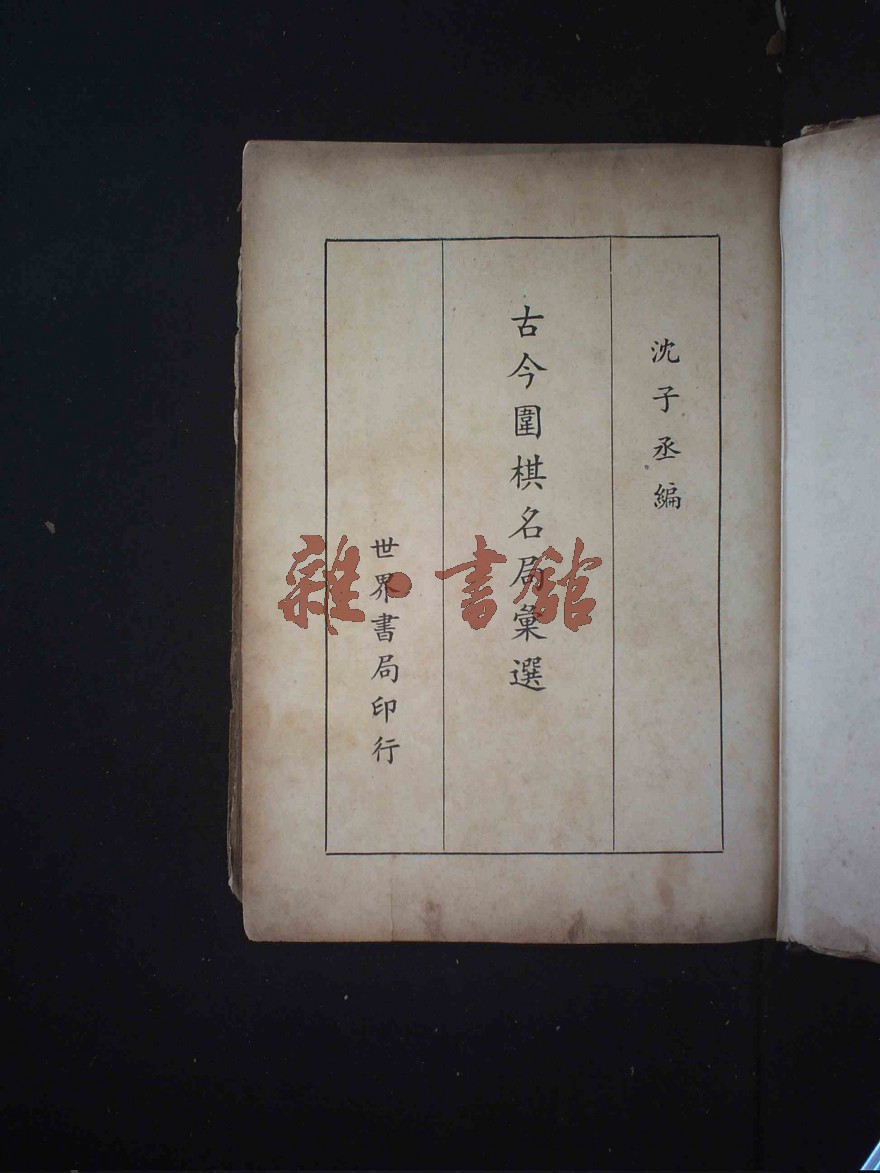 沈子丞編
古今圍棋名局彙選
世界書局印行
雜·書館